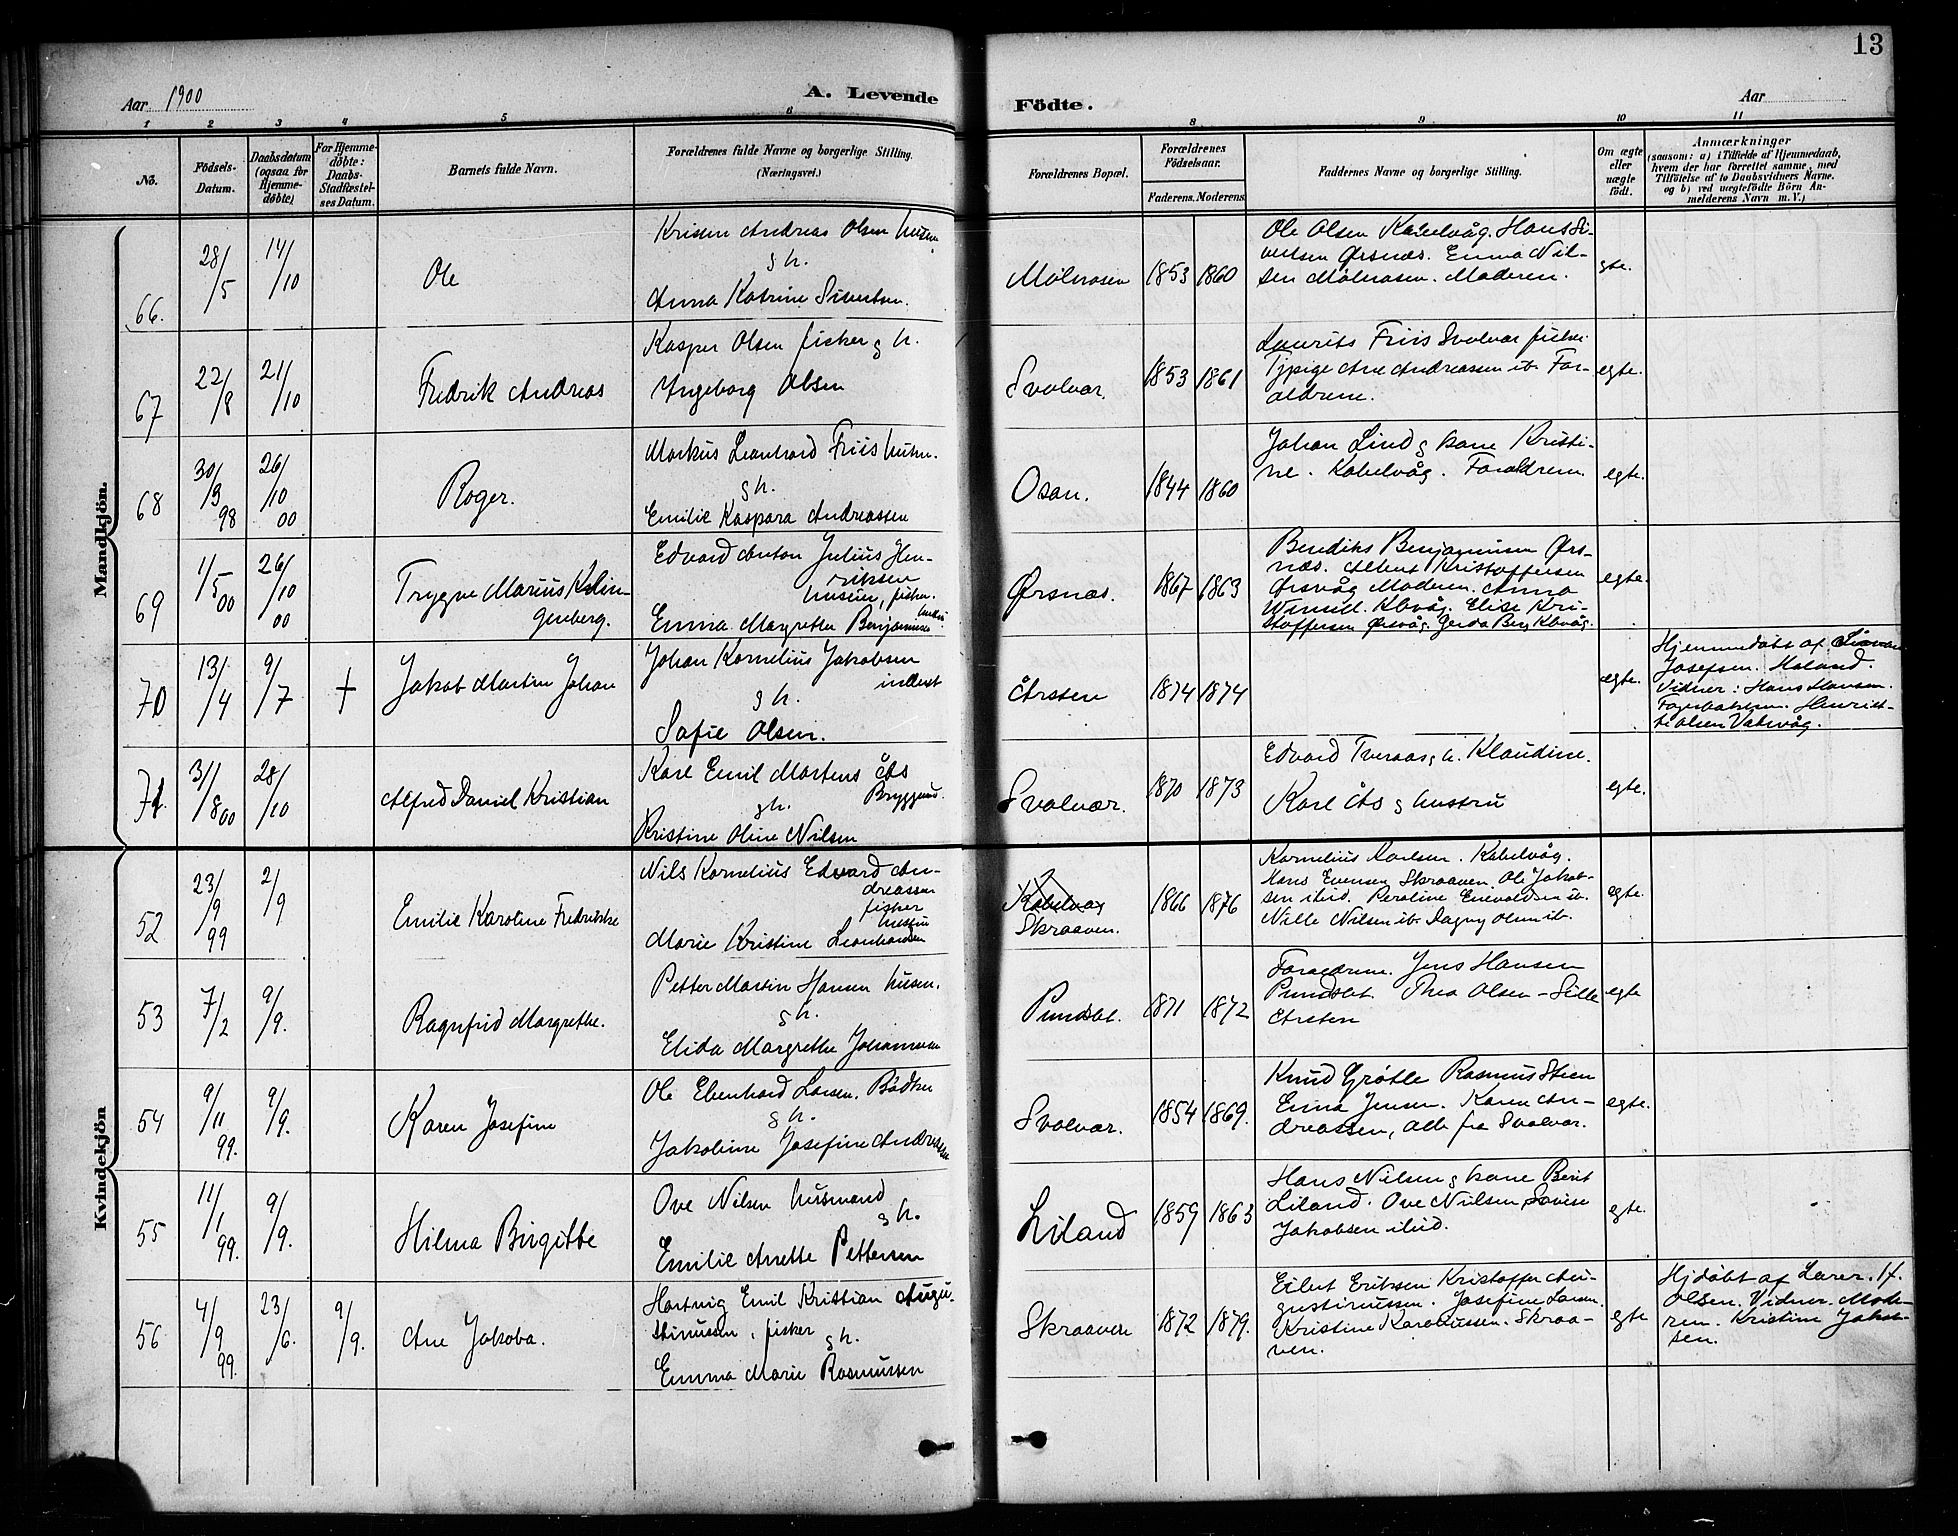 13
Aar 1900
A. Levende
Födte.
Aar
1 2 3 4 5 6 8 9 10 11
No.
Födsels-
Datum.
Daabsdatum
(ogsaa for
Hjemme-
døbte)
For Hjemme-
døbte:
Daabs-
Stadfæstel-
ses Datum.
Barnets fulde Navn.
Forældrenes fulde Navne og borgerlige Stilling.
(Næringsvei.)
Forældrenes Bopæl.
Forældrenes
Födselsaar.
Faderens. Moderens.
Faddernes Navne og borgerlige Stilling.
Om ægte
eller
uægte
født.
Anmærkninger
(saasom: a) i Tilfælde af Hjemmedaab,
hvem der har forrettet samme, med
Tilføielse af to Daabsvidners Navne.
og b) ved uægtefödte Börn An-
melderens Navn m. V.)
Mandkjön.
66.
28/5
14/10
Ole
Kristen Andreas Olsen husm
g h.
Anna Katrine Sivertsen.
Mølnosen
1853 1860
Ole Olsen Kabelvåg. Hans Si-
vertsen Ørsnæs. Emma Nil-
sen Mølnosen. Moderen.
gte.
67
22/8
21/10
Fredrik Andreas
Kasper Olsen fisker g h.
Ingeborg Olsen
Svolvær.
1853 1861
Laurits Friis Svolvær fisker
Tjpige Ane Andreassen ib. For-
ældrene.
egte.
68
30/9 98
26/10 00
Roger.
Markus Leonhard Friis husm.
g h.
Emilie Kaspara Andreassen
Osan.
1844 1860
Johan Lind g kone Kristi-
ne. Kabelvåg. Forældrene
egte.
69
1/5 00
26/10 00
Trygve Marius Klin-
genberg.
Edvard Anton Julius Hen-
riksen
husm, fisker.
Emma Margrethe Benjaminsen
Ørsnæs.
1867 1863
Bendiks Benjaminsen Ørs-
næs. Albert Kristoffersen
Ørsvåg Moderen. Anna
Kbvåg. Elise Kri-
stoffersen Ørsvåg. Gerda Berg Kbvåg.
egte.
70
13/4
9/7
+
Jakob Martin Johan
Johan Kornelius Jakobsen
inderst
g h.
Sofie Olsen.
Årsten
1874 1874
egte.
Hjemmedøbt af
Josefsen. Holand.
Vidner: Hans Hansen.
Henriet-
te Olsen Vatervåg.
71.
31/8 00
28/10
Alfred Daniel Kristian
Karl Emil Martens Ås
Bryggem.
g h.
Kristine Oline Nilsen
Svolvær.
1870 1873
Edvard Tveraas g h. Klaudine.
Karl Ås g hustru
egte.
Kvindekjön
52
23/9 99
2/9
Emilie Karoline Fredrikke
Nils Kornelius Edvard An-
dreassen
fisker
hustru
Marie Kristine Leonhardsen
Kabelvåg
Skraaven.
1866 1876
Kornelius Karlsen. Kabelvåg.
Hans Evensen Skraaven. Ole Jakob-
sen ibid. Peroline Enevoldsen ib.
Nille Nilsen ib. Dagny Olsen ib.
egte.
53
7/2
9/9.
Ragnfrid Margrethe.
Petter Martin Hansen husm.
g h.
Elida Margrethe Johannesen
Pundslet.
1871 1872
Forældrene. Jens Hansen
Pundslet. Thea Olsen – Sille
egte
54
9/11 99.
9/9.
Karen Josefine
Ole Ebenhard Larsen. Bødker
g h.
Jakobine Josefine Andreassen
Svolvær.
1854 1869.
Knud Grøtle Rasmus Steen
Emma Jensen. Karen An-
dreassen, alle fra Svolvær.
egte.
55
11/1 99.
9/9.
Hilma Birgitte
Ove Nilsen husmand
g h.
Emilie Anette Pettersen
Liland
1859 1863
Hans Nilsen g kone Berit
Liland. Ove Nilsen, Lovise
Jakobsen ibid.
egte.
56
4/9 99.
23/6.
9/9.
Ane Jakoba.
Hartvig Emil Kristian Augu-
stinussen, fisker
g h.
Emma Marie Rasmussen
Skraaven
1872 1879.
Eilert Eriksen Kristoffer Au-
gustinussen. Josefine Larsen.
Kristine Rasmussen. Skraa-
ven.
egte
Hjdøbt af Lærer. H.
Olsen. Vidner. Mode-
ren. Kristine Jakob-
sen.